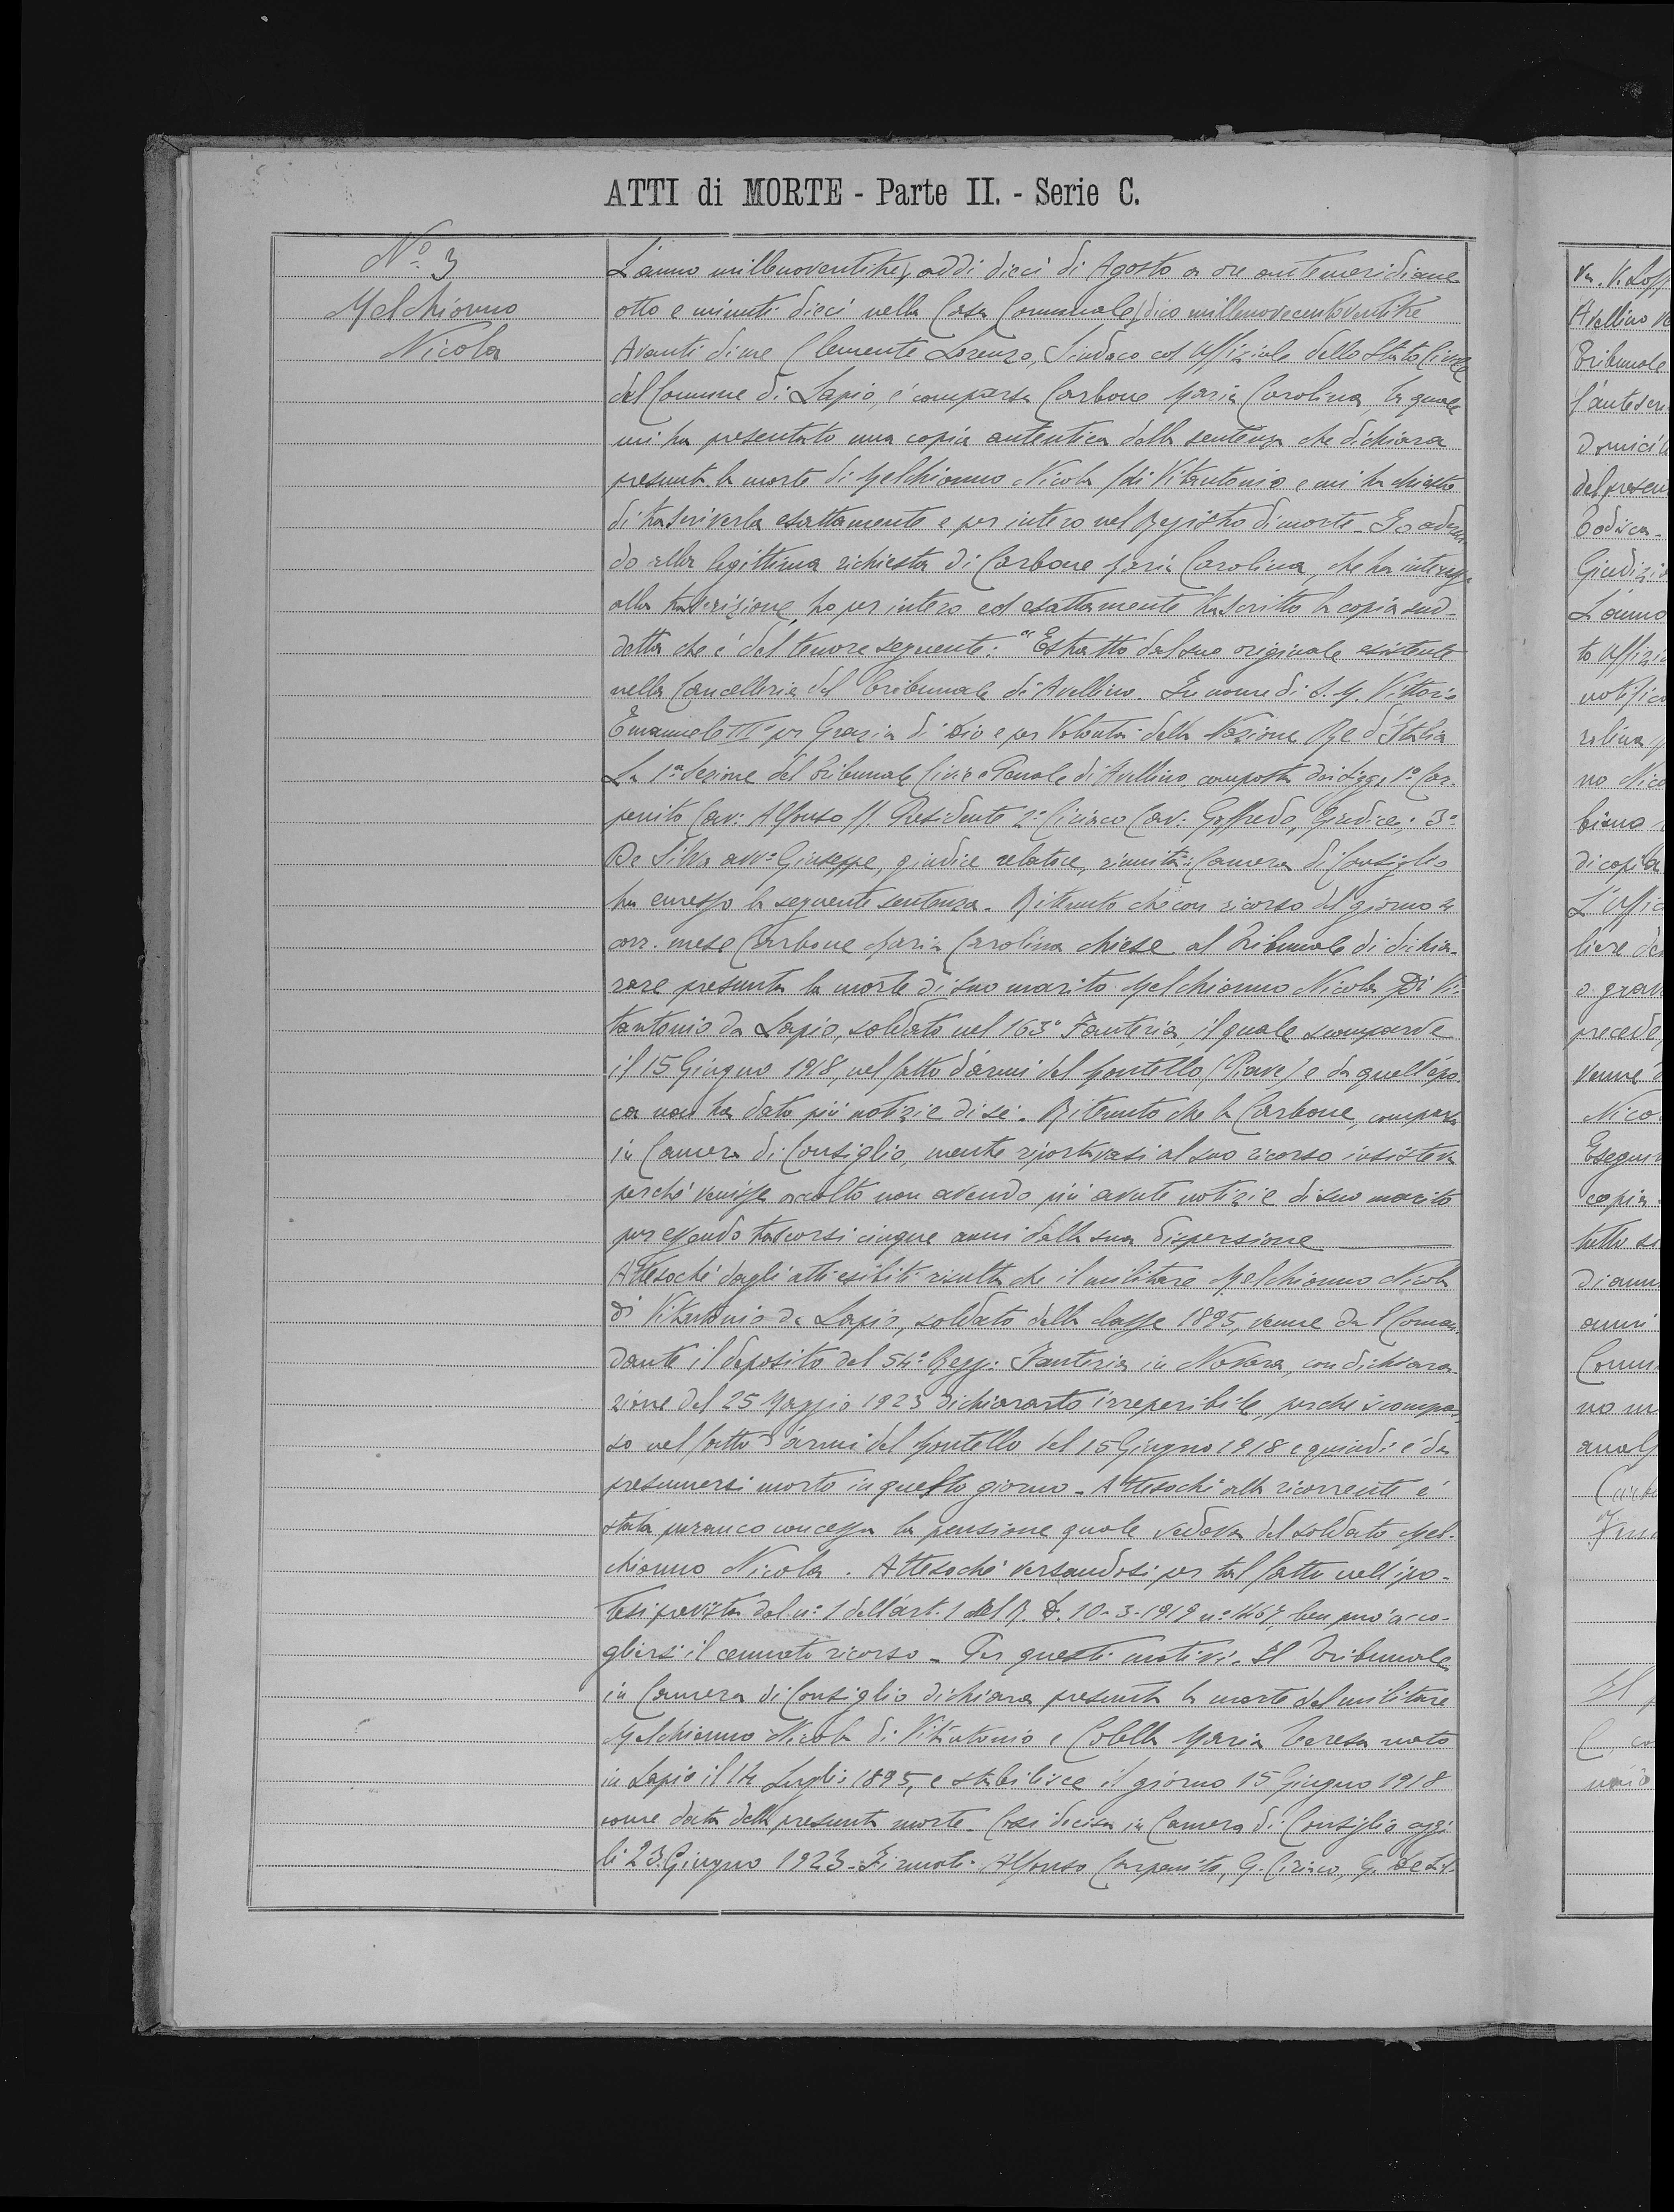 ATTI di MORTE - Parte II. - Serie C.
No. 3
Melchionno
Nicola
L'anno millenoventitre, addì dieci di Agosto a ore antemeridiane
otto e minuti dieci nella Casa Comunale (dico millenovecentoventitre
Avanti di me Clemente Lorenzo, Sindaco ed Uffiziale dello Stato Civile
del Comune di Lapio, è comparsa Carbone Maria Carolina, la quale
mi ha presentato una copia autentica della sentenza che dichiara
presunta la morte di Melchionno Nicola di Vitantonio e mi ha chiesto
di trascriverla esattamente e per intero nel Registro di morte. Io aderen-
do alla legittima richiesta di Carbone Maria Carolina, che ha interesse
alla trascrizione, ho per intero ed esattamente trascritto la copia sud-
detta che è del tenore seguente: "Estratto dal suo originale esistente
nella Cancelleria del Tribunale di Avellino. In nome di S. M. Vittorio
Emanuele III per Grazia di Dio e per Volontà della Nazione Re d'Italia
La 1a Sezione del Tribunale Civile e Penale di Avellino, composta dai Sigg. 1o Car-
penito Cav: Alfonso ff. Presidente 2o Ciriaco Cav: Goffredo, Giudice; 3o
De Silva avv: Giuseppe, giudice relatore, riunita in Camera di Consiglio
ha emesso la seguente sentenza. Ritenuto che con ricorso del giorno
corr. mese Carbone Maria Carolina chiese al Tribunale di dichia-
rare presunta la morte di suo marito Melchionno Nicola di Vi-
tantonio da Lapio, soldato nel 163o Fanteria, il quale scomparve
il 15 Giugno 1918, nel fatto d'armi del Montello (Piave) e da quell'epo-
ca non ha dato più notizie di sé. Ritenuto che la Carbone, comparsa
in Camera di Consiglio, mentre riportavasi al suo ricorso insisteva
perché venisse accolto non avendo più avute notizie di suo marito
pur essendo trascorsi cinque anni dalla sua dispersione
Attesoché dagli atti esibiti risulta che il militare Melchionno Nicola
di Vitantonio da Lapio, soldato della classe 1895, venne dal Coman-
dante il deposito del 54o Regg. Fanteria in Novara, con dichiara-
zione del 25 Maggio 1923 dichiarato irreperibile, perché scompar-
so nel fatto d'armi del Montello del 15 Giugno 1918 e quindi è da
presumersi morto in quello giorno. Attesoché alla ricorrente è
stata puranco concessa la pensione quale vedova del soldato Mel-
chionno Nicola. Attesoché versandosi per tal fatto nell'ipo-
tesi prevista dal n: 1 dell'art. 1 del R. D. 10-3-1919 no 1467, ben può acco-
gliersi il cennato ricorso. Per questi motivi. Il Tribunale
in Camera di Consiglio dichiara presunta la morte del militare
Melchionno Nicola di Vitantonio e Colella Maria Teresa nato
in Lapio il 14 Luglio 1895, e stabilisce il giorno 15 Giugno 1918
come data della presunta morte. Così decisa in Camera di Consiglio oggi
li 23 Giugno 1923. Firmati. Alfonso Carpenito, G. Ciriaco, G. De Sil-
Avellino
Tribunale
L'anno